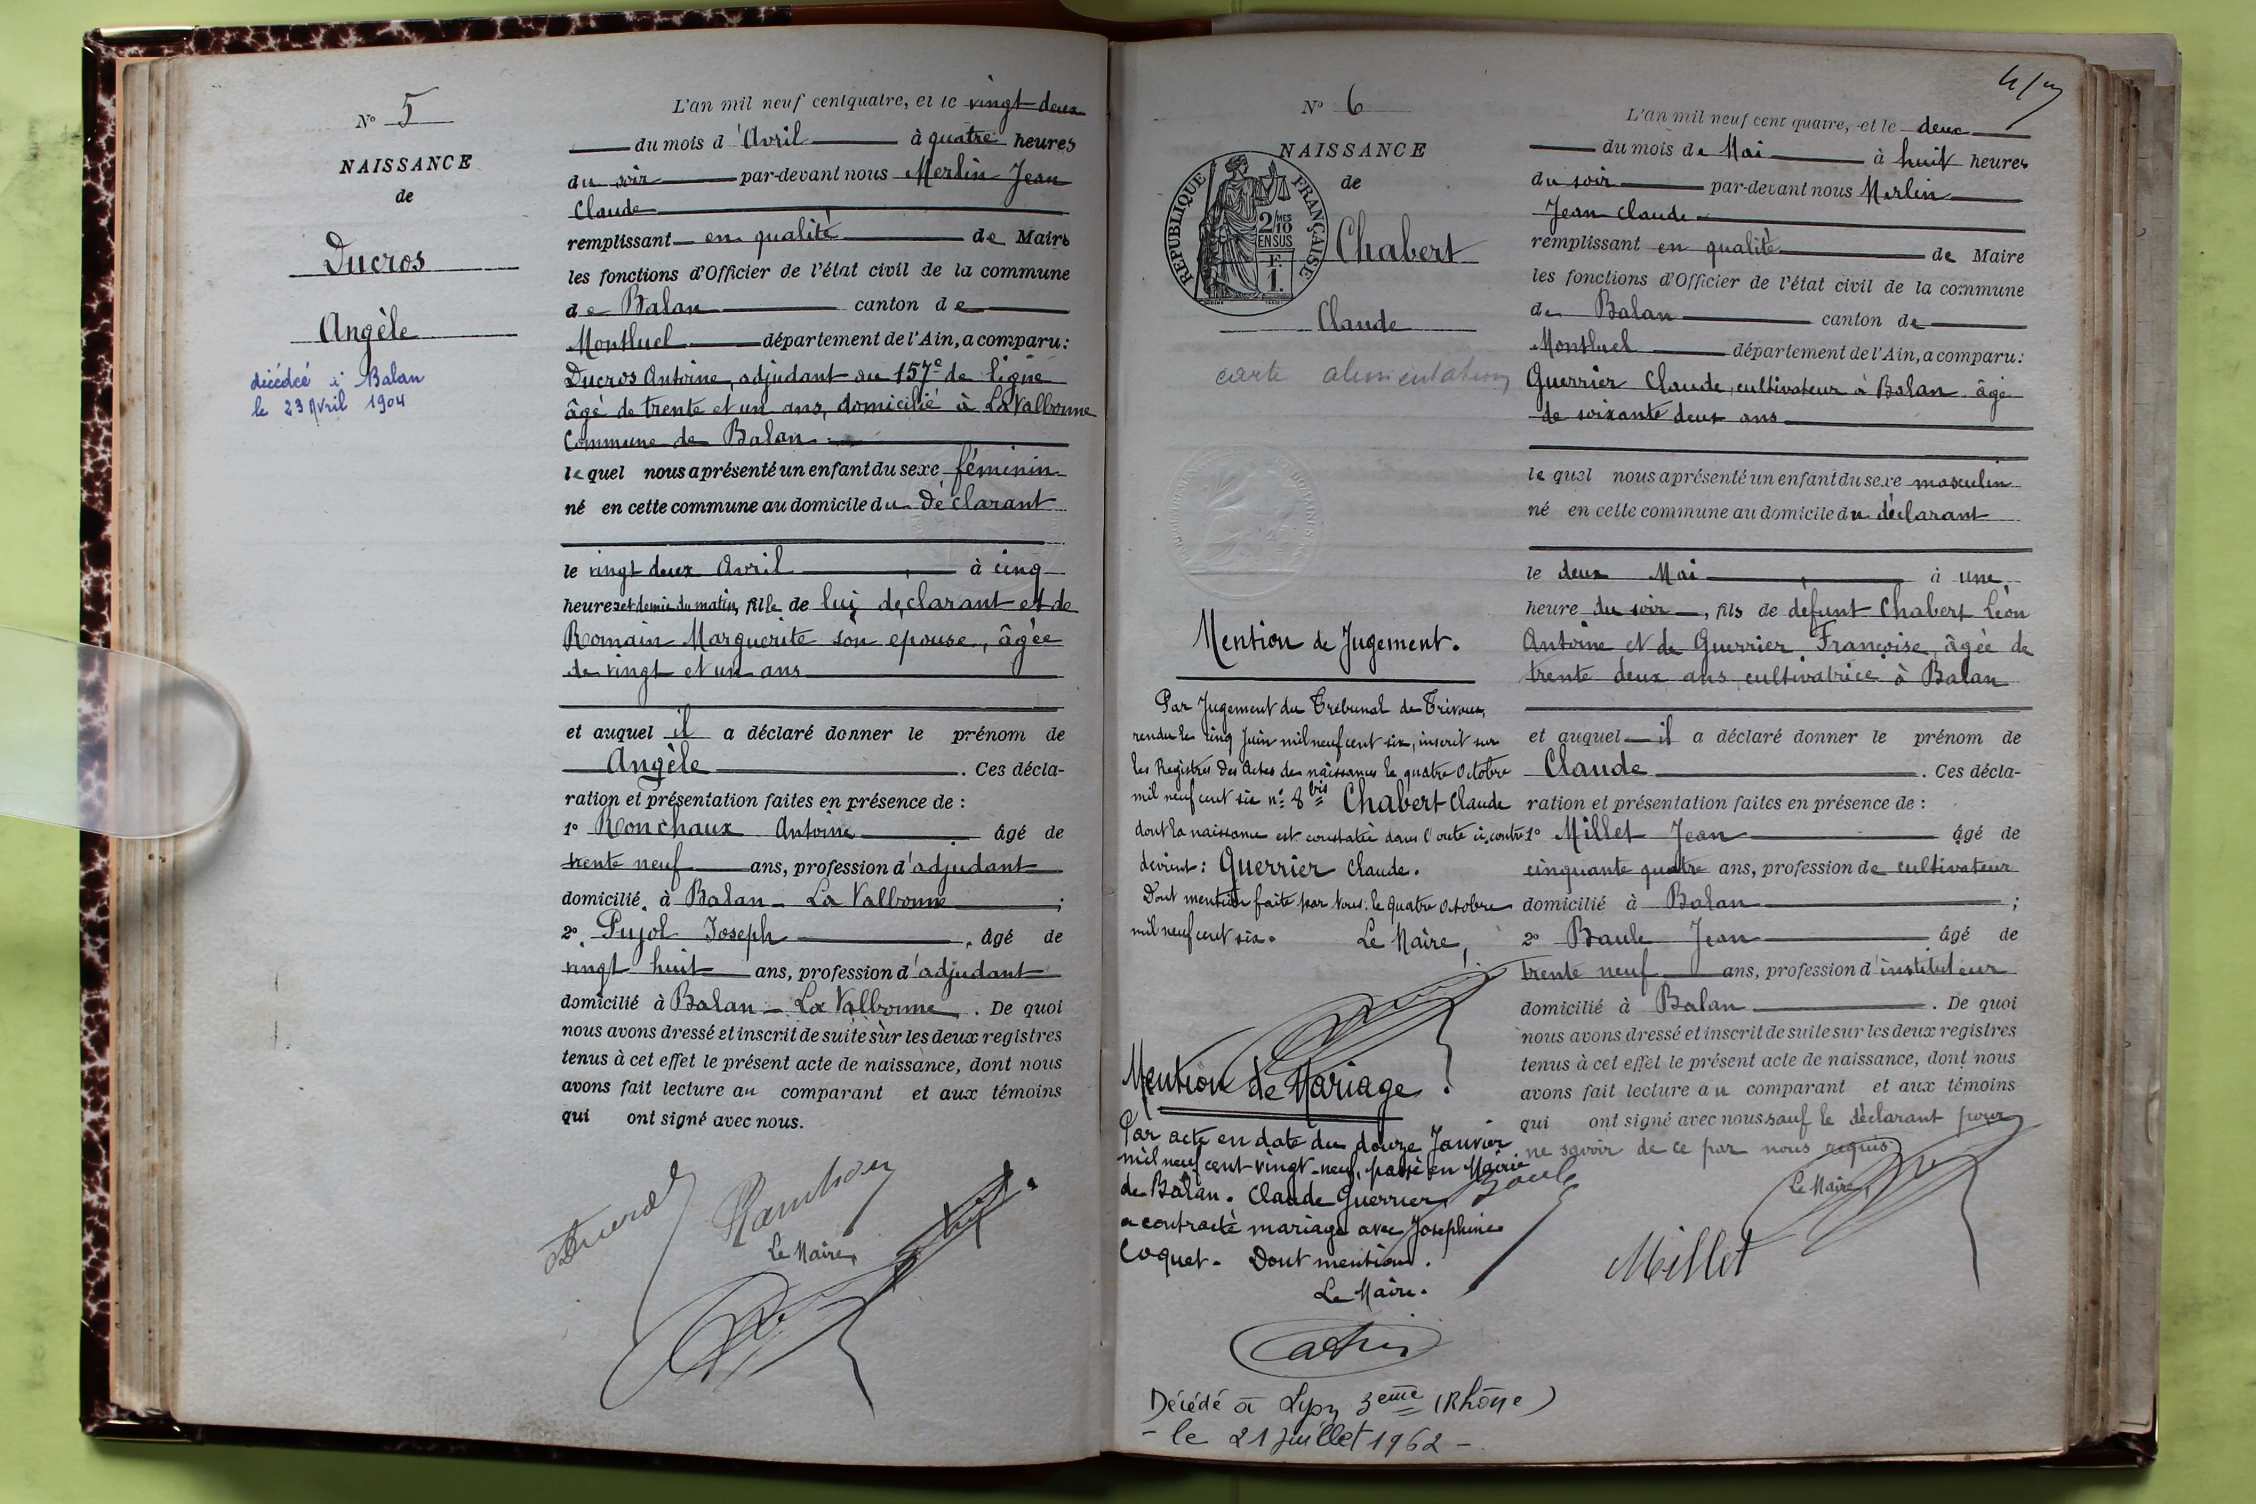 N° 5
NAISSANCE
de
Ducros
Angèle
décédée à Balan
le 23 Avril 1904
L'an mil neuf cent quatre, et le vingt deux
du mois d'Avril à quatre heures
du soir par-devant nous Merlin Jean
Claude
remplissant en qualité de Maire
les fonctions d'Officier de l'état civil de la commune
de Balan canton de
Montluel département de l'Ain, a comparu:
Ducros Antoine, adjudant au 157e de ligne
âgé de trente et un ans, domicilié à La Valbonne
Commune de Balan
le quel nous a présenté un enfant du sexe féminin
né en cette commune au domicile du déclarant
le vingt deux Avril à cinq
heures et demie du matin, fille de lui déclarant et de
Romain Marguerite son epouse, âgée
de vingt et un ans
et auquel il a déclaré donner le prénom de
Angèle. Ces décla-
ration et présentation faites en présence de :
1° Ronchaux Antoine âgé de
trente neuf ans, profession d'adjudant
domicilié à Balan - La Valbonne ;
2° Pujol Joseph, âgé de
vingt huit ans, profession d'adjudant
domicilié à Balan - La Valbonne. De quoi
nous avons dressé et inscrit de suite sur les deux registres
tenus à cet effet le présent acte de naissance, dont nous
avons fait lecture au comparant et aux témoins
qui ont signé avec nous.
Le Maire
N° 6
NAISSANCE
de
RÉPUBLIQUE FRANÇAISE
2/10 MES
EN SUS
F.
1.
Chabert
Claude
carte alimentation
Mention de Jugement.
Par Jugement du Tribunal de Trévoux,
rendu le cinq Juin mil neuf cent six, inscrit sur
les Registres des Actes de naissances le quatre Octobre
mil neuf cent six n° 8 bis Chabert Claude
dont la naissance est constatée dans l'acte ci-contre
devient : Guerrier Claude.
Dont mention faite par Nous le quatre Octobre
mil neuf cent six.
Le Maire,
Mention de Mariage
Par acte en date du douze Janvier
mil neuf cent vingt-neuf, passé en Mairie
de Balan. Claude Guerrier
a contracté mariage avec Joséphine
Coquet. Dont mention.
Le Maire.
Décédé à Lyon 3eme (Rhône)
- le 21 Juillet 1962 -
L'an mil neuf cent quatre, et le deux
du mois de Mai à huit heures
du soir par-devant nous Merlin
Jean Claude
remplissant en qualité de Maire
les fonctions d'Officier de l'état civil de la commune
de Balan canton de
Montluel département de l'Ain, a comparu:
Guerrier Claude, cultivateur à Balan âgé
de soixante deux ans
le quel nous a présenté un enfant du sexe masculin
né en cette commune au domicile du déclarant
le deux Mai à une
heure du soir, fils de défunt Chabert Léon
Antoine et de Guerrier Françoise, âgée de
trente deux ans, cultivatrice à Balan
et auquel il a déclaré donner le prénom de
Claude. Ces décla-
ration et présentation faites en présence de :
1° Millet Jean âgé de
cinquante quatre ans, profession de cultivateur
domicilié à Balan ;
2° Baule Jean âgé de
trente neuf ans, profession d'instituteur
domicilié à Balan. De quoi
nous avons dressé et inscrit de suite sur les deux registres
tenus à cet effet le présent acte de naissance, dont nous
avons fait lecture au comparant et aux témoins
qui ont signé avec nous sauf le déclarant pour
ne savoir de ce par nous requis
Baule
Le Maire,
Millet